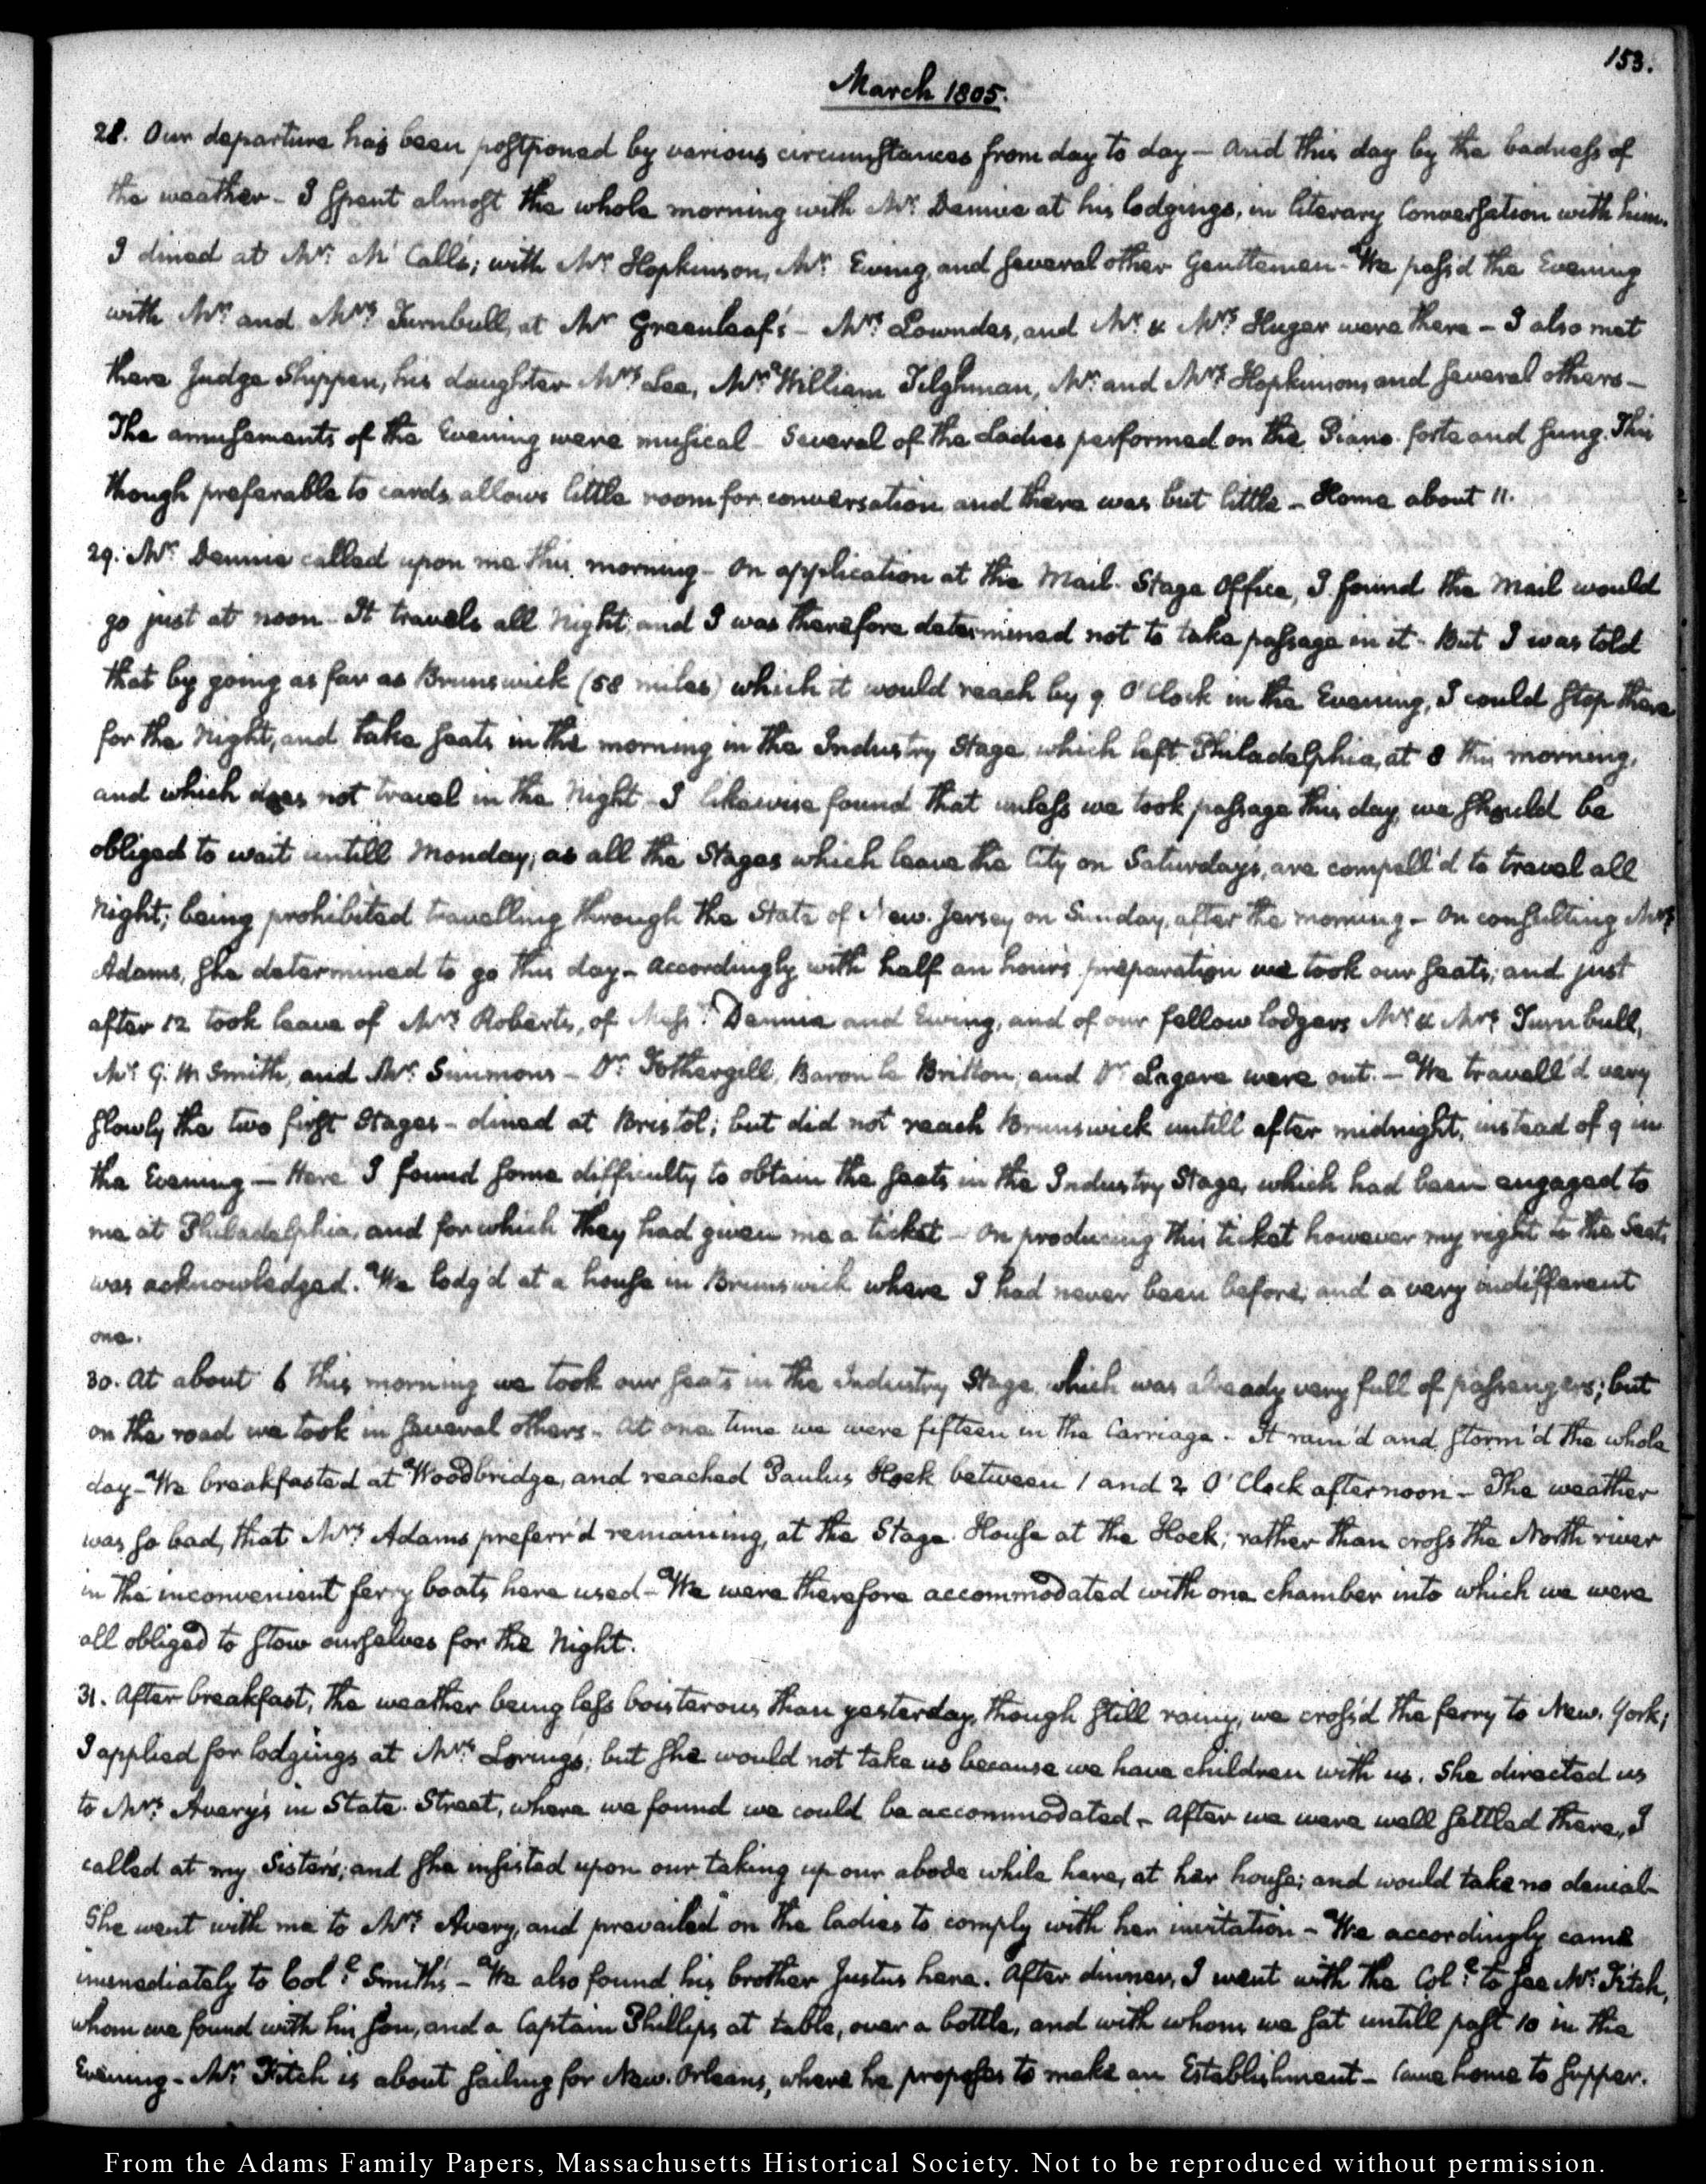 153.
March 1805.
28. Our departure has been postponed by various circumstances from day to day — and this day by the badness of
the weather — I spent almost the whole morning with Mr. Dennie at his lodgings, in literary Conversation with him.
I dined at Mr. Mc Call's; with Mr. Hopkinson, Mr. Ewing, and several other Gentlemen — We pass'd the Evening
with Mr. and Mrs. Turnbull, at Mr Greenleaf's — Mrs. Lowndes, and Mr. & Mrs. Huger were there — I also met
there Judge Shippen, his daughter Mrs. Lea, Mr. William Tilghman, Mr. and Mrs. Hopkinson, and several others —
The amusements of the Evening were musical — Several of the Ladies performed on the Piano forte and sung. This
though preferable to cards, allows little room for conversation and there was but little — Home about 11.
29. Mr. Dennie called upon me this morning — On application at the Mail-Stage Office, I found the Mail would
go just at noon — It travels all Night, and I was therefore determined not to take passage in it — But I was told
that by going as far as Brunswick (58 miles) which it would reach by 9 O'Clock in the Evening, I could stop there
for the Night, and take seats in the morning in the Industry Stage, which left Philadelphia, at 8 this morning,
and which does not travel in the Night — I likewise found that unless we took passage this day, we should be
obliged to wait untill Monday; as all the Stages which leave the City on Saturdays, are compell'd to travel all
Night; being prohibited travelling through the State of New-Jersey on Sunday, after the morning — On consulting Mrs.
Adams, she determined to go this day — Accordingly with half an hour's preparation we took our seats; and just
after 12 took leave of Mrs. Roberts, of Messrs. Dennie and Ewing, and of our fellow lodgers Mr. & Mrs. Turnbull,
Mr. G. M Smith, and Mr. Simmons — Dr. Fothergill, Baron le Britton, and Dr. Legare were out. — We travell'd very
slowly the two first Stages — dined at Bristol; but did not reach Brunswick untill after midnight, instead of 9 in
the Evening — Here I found some difficulty to obtain the seats in the Industry Stage, which had been engaged to
me at Philadelphia, and for which they had given me a ticket — On producing this ticket however my right to the Seats
was acknowledged. We lodg'd at a house in Brunswick where I had never been before, and a very indifferent
one.
30. At about 6 this morning we took our seats in the Industry Stage, which was already very full of passengers; but
on the road we took in several others — At one time we were fifteen in the Carriage — It rain'd and storm'd the whole
day — We breakfasted at Woodbridge, and reached Paulus Hoek between 1 and 2 O'Clock afternoon — The weather
was so bad, that Mrs. Adams preferr'd remaining, at the Stage House at the Hoek; rather than cross the North river
in the inconvenient ferry boats here used — We were therefore accommodated with one chamber into which we were
all obliged to stow ourselves for the Night.
31. After breakfast, the weather being less boisterous than yesterday, though still rainy, we cross'd the ferry to New-York;
I applied for lodgings at Mrs. Loring's; but she would not take us because we have children with us. She directed us
to Mrs. Avery's in State-Street, where we found we could be accommodated — After we were well settled there, I
called at my Sister's; and she insisted upon our taking up our abode while here, at her house; and would take no denial —
She went with me to Mrs. Avery, and prevailed on the ladies to comply with her invitation — We accordingly came
immediately to Coll. Smith's — We also found his brother Justus here. After dinner, I went with the Coll. to see Mr. Fitch,
whom we found with his son, and a Captain Phillips at table, over a bottle, and with whom we sat untill past 10 in the
Evening — Mr. Fitch is about sailing for New-Orleans, where he proposes to make an Establishment — Came home to supper.
From the Adams Family Papers, Massachusetts Historical Society. Not to be reproduced without permission.